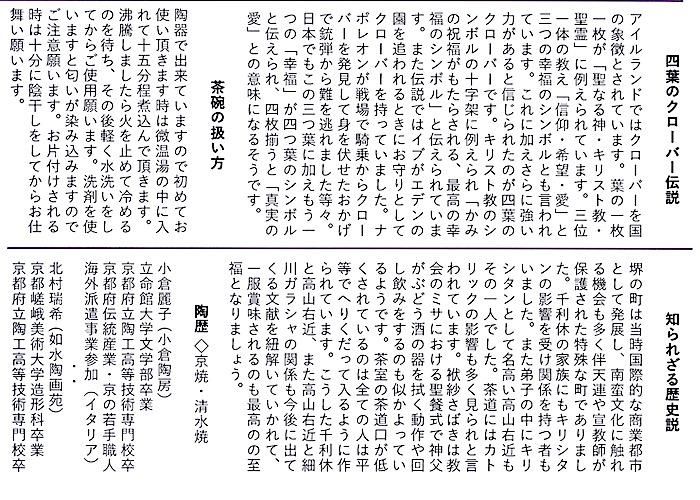 四葉のクローバー伝説
アイルランドではクローバーを国
の象徴とされています。葉の一枚
一枚が「聖なる神・キリスト教・
聖霊」に例えられています。三位
一体の教え「信仰・希望・愛」と
三つの幸福のシンボルとも言われ
ています。これに加えさらに強い
力があると信じられたのが四葉の
クローバーです。キリスト教のシ
ンボルの十字架に例えられ「かみ
の祝福がもたらされる、最高の幸
福のシンボル」と伝えられていま
す。また伝説ではイブがエデンの
園を追われるときにお守りとして
クローバーを持っていました。ナ
ポレオンが戦場で騎乗からクロー
バーを発見して身を伏せたおかげ
で銃弾から難を逃れました等々。
日本でもこの三つ葉に加えもう一
つの「幸福」が四つ葉のシンボル
と伝えられ、四枚揃うと「真実の
愛」との意味になるそうです。
茶碗の扱い方
陶器で出来ていますので初めてお
使い頂きます時は微温湯の中に入
れて十五分程煮込んで頂きます。
沸騰しましたら火を止めて冷める
のを待ち、その後軽く水洗いをし
てからご使用願います。洗剤を使
いますと匂いが染み込みますので
ご注意願います。お片付けされる
時は十分に陰干しをしてからお仕
舞い願います。
知られざる歴史説
堺の町は当時国際的な商業都市
として発展し、南蛮文化に触れ
る機会も多く伴天連や宣教師が
保護された特殊な町でありまし
た。千利休の家族にもキリシタ
ンの影響を受け関係を持つ者も
いました。また弟子の中にキリ
シタンとして名高い高山右近も
その一人でした。茶道にはカト
リックの影響も多く見られと言
われています。袱紗さばきは教
会のミサにおける聖餐式で神父
がぶどう酒の器を拭く動作や回
し飲みをするのも似かよってい
るようです。茶室の茶道口が低
くされているのは全ての人は平
等でへりくだって入るように作
られています。こうした千利休
と高山右近、また高山右近と細
川ガラシャの関係も今後に出て
くる文献を紐解いていかれて、
一服賞味されるのも最高のの至
福となりましょう。
陶歴 ◇京焼・清水焼
小倉麗子（小倉陶房）
立命館大学文学部卒業
京都府立陶工高等技術専門校卒
京都府伝統産業・京の若手職人
海外派遣事業参加（イタリア）
・・
北村瑞希（如水陶画苑）
京都嵯峨美術大学造形科卒業
京都府立陶工高等技術専門校卒